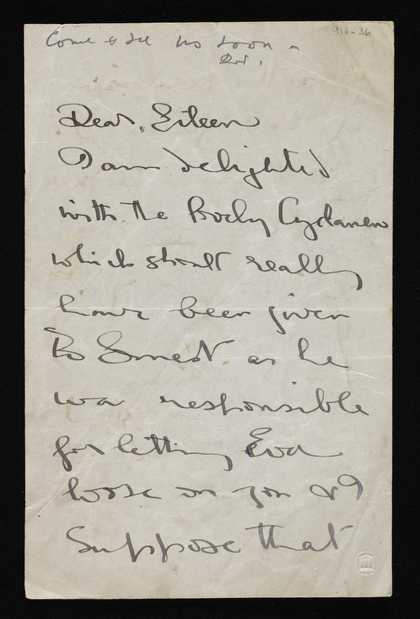 Come & see us soon
Dear, Eileen
I am delighted
with the Cyclamen
which should really
have been given
to Ernest as he
was responsible
for letting Eva
loose on you & I
suppose that